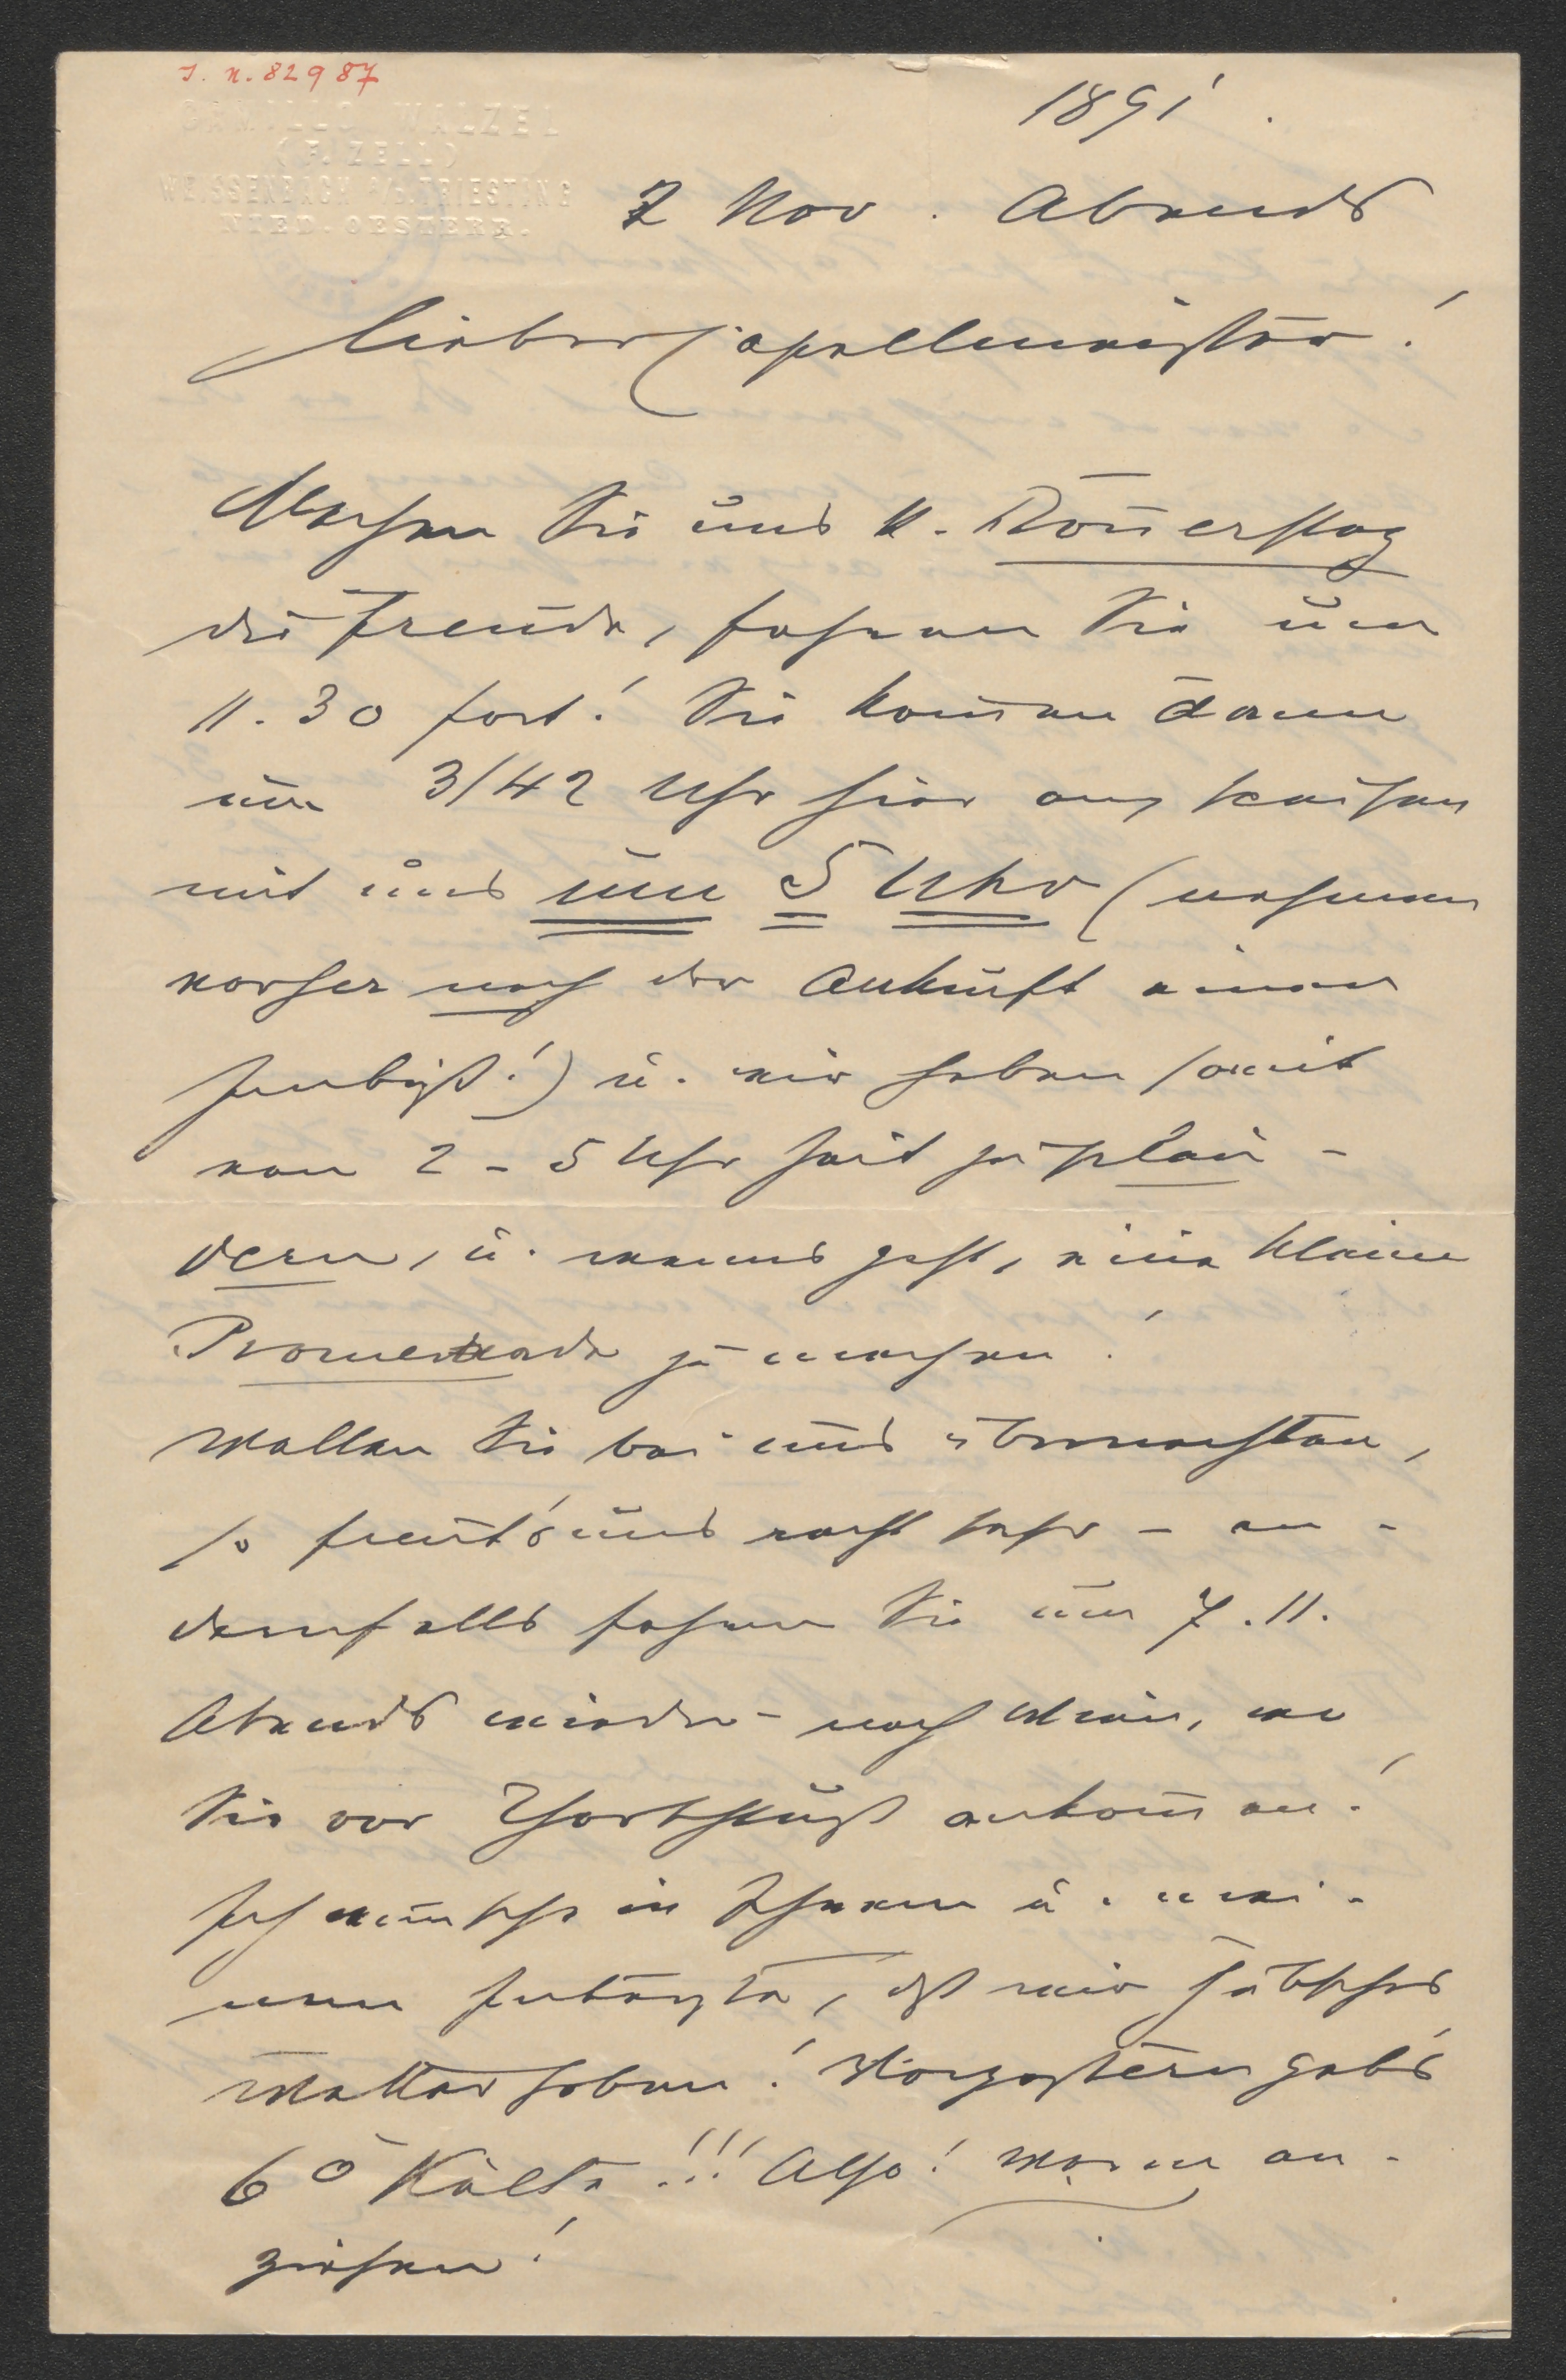 I. N. 82987
CAMILLO WALZEL
(F. ZELL)
WEISSENBACH A/D TRIESTING
NIED. OESTERR.
1891.
7 Nov. Abends
lieber Capellmeister!
Machen Sie uns n. Donerstag
die Freude, fahren Sie um
11.30 fort! Sie komen dann
um 3/42 Uhr hier an, speisen
mit uns um 5 Uhr (nehmen
vorher nach der Ankunft einen
Imbiß!) u. wir haben somit
von 2 - 5 Uhr Zeit zu plau-
dern, u. wenns geht, eine kleine
Promenade zu machen!
Wollen Sie bei uns übernachten,
so freut's uns recht sehr - an-
dernfalls fahren Sie um 7.11.
Abends wieder nach Wien, wo
Sie vor Thorschluß ankomen!
Ich wünsche in Ihrem u. mei-
nem Intereße, dß wir hübsches
Wetter haben! Vorgestern gab's
6° Kälte!!! Also! warm an-
ziehen!